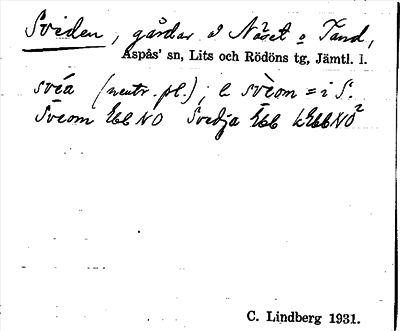 Sviden, gårdar i Näset o Tand,
Aspås' sn, Lits och Rödöns tg, Jämtl. l.
svéa (neutr. pl.); e svèom = i S.
Sveom Ebb NO Svedja Ebb kEbbNO²
C. Lindberg 1931.